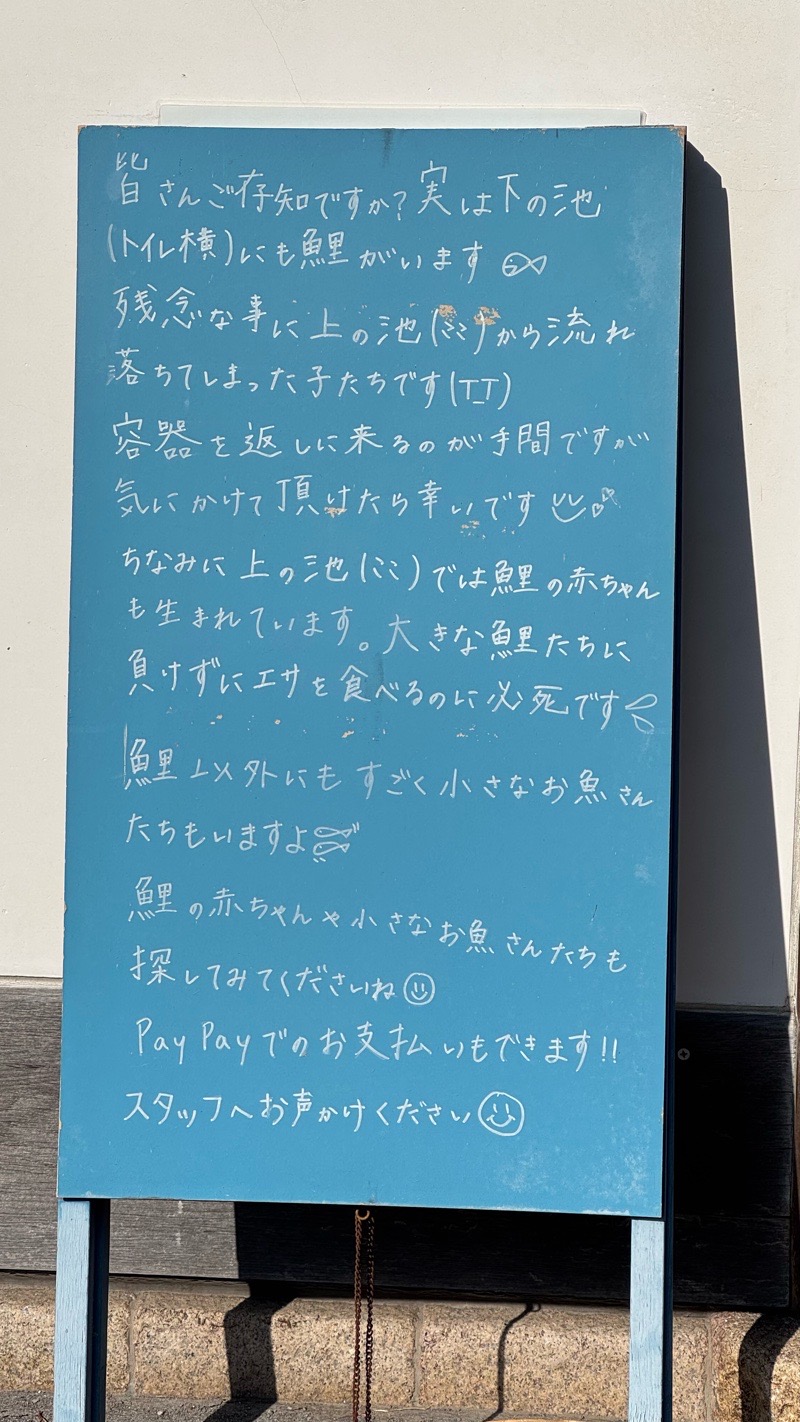 皆さんご存知ですか?実は下の池
(トイレ横)にも鯉がいます
残念な事に上の池(ここ)から流れ
落ちてしまった子たちです(T_T)
容器を返しに来るのが手間ですが
気にかけて頂けたら幸いです
ちなみに上の池(ここ)では鯉の赤ちゃん
も生まれています。大きな鯉たちに
負けずにエサを食べるのに必死です
鯉以外にもすごく小さなお魚さん
たちもいますよ
鯉の赤ちゃんや小さなお魚さんたちも
探してみてくださいね
PayPayでのお支払いもできます!!
スタッフへお声かけください